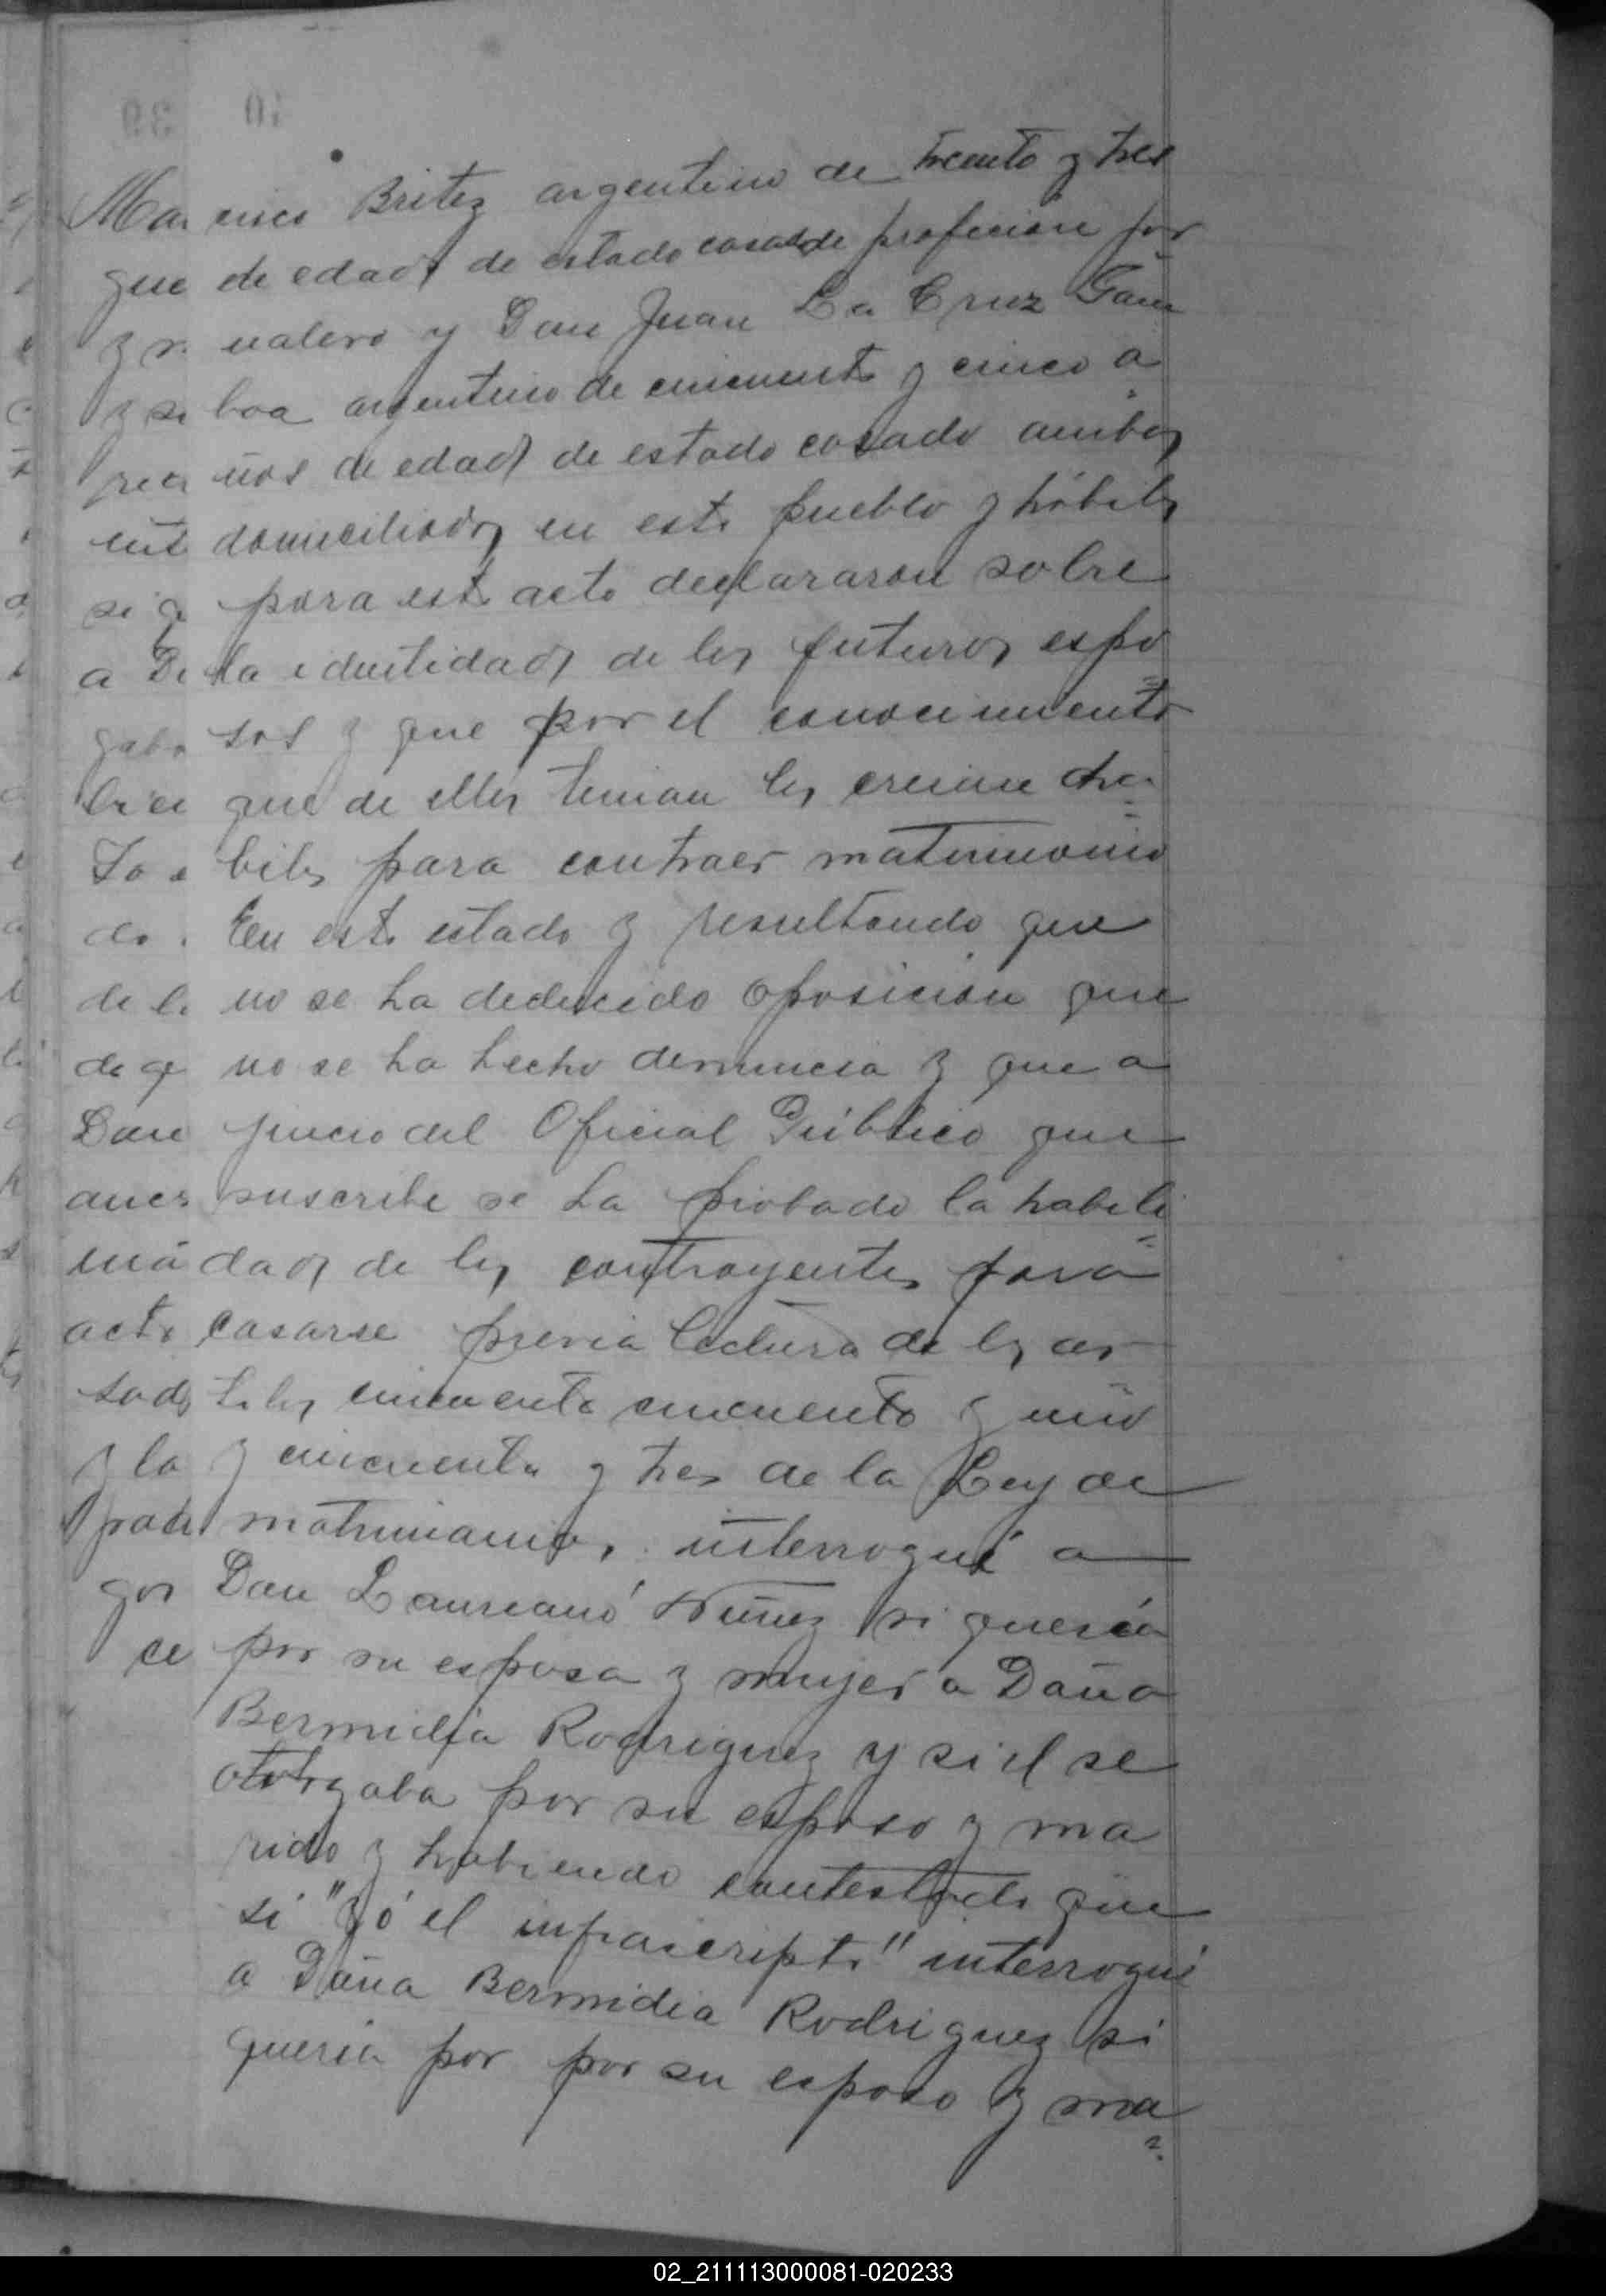 cisco Britez argentino de treinta y tres
de edad de estado casado de profecion jor
nalero y Don Juan La Cruz Gam
boa argentino de cincuenta y cinco a
ños de edad de estado casado ambos
domiciliados en este pueblo y hábiles
para este acto declararon sobre
la identidad de los futuros espo
sos y que por el conocimiento
que de ellos tenian los creian ha
biles para contraer matrimonio
En este estado y resultando que
no se ha deducido oposicion que
no se ha hecho denuncia y que a
juicio del Oficial Público que
suscribe se ha probado la habili
dad de los contrayentes para
casarse previa lectura de los ar
tilos cincuenta cincuenta y uno
y cincuenta y tres de la Ley de
matrimonio, interrogué a
Don Laureano Nuñez si queria
por su esposa y mujer a Doña
Bermidia Rodriguez y si el se
ototrgaba por su esposo y ma
rido y habiendo contestado que
si "yó el infrascripto" interrogué
a Doña Bermidia Rodriguez si
queria por por su esposo y ma
02_211113000081-020233